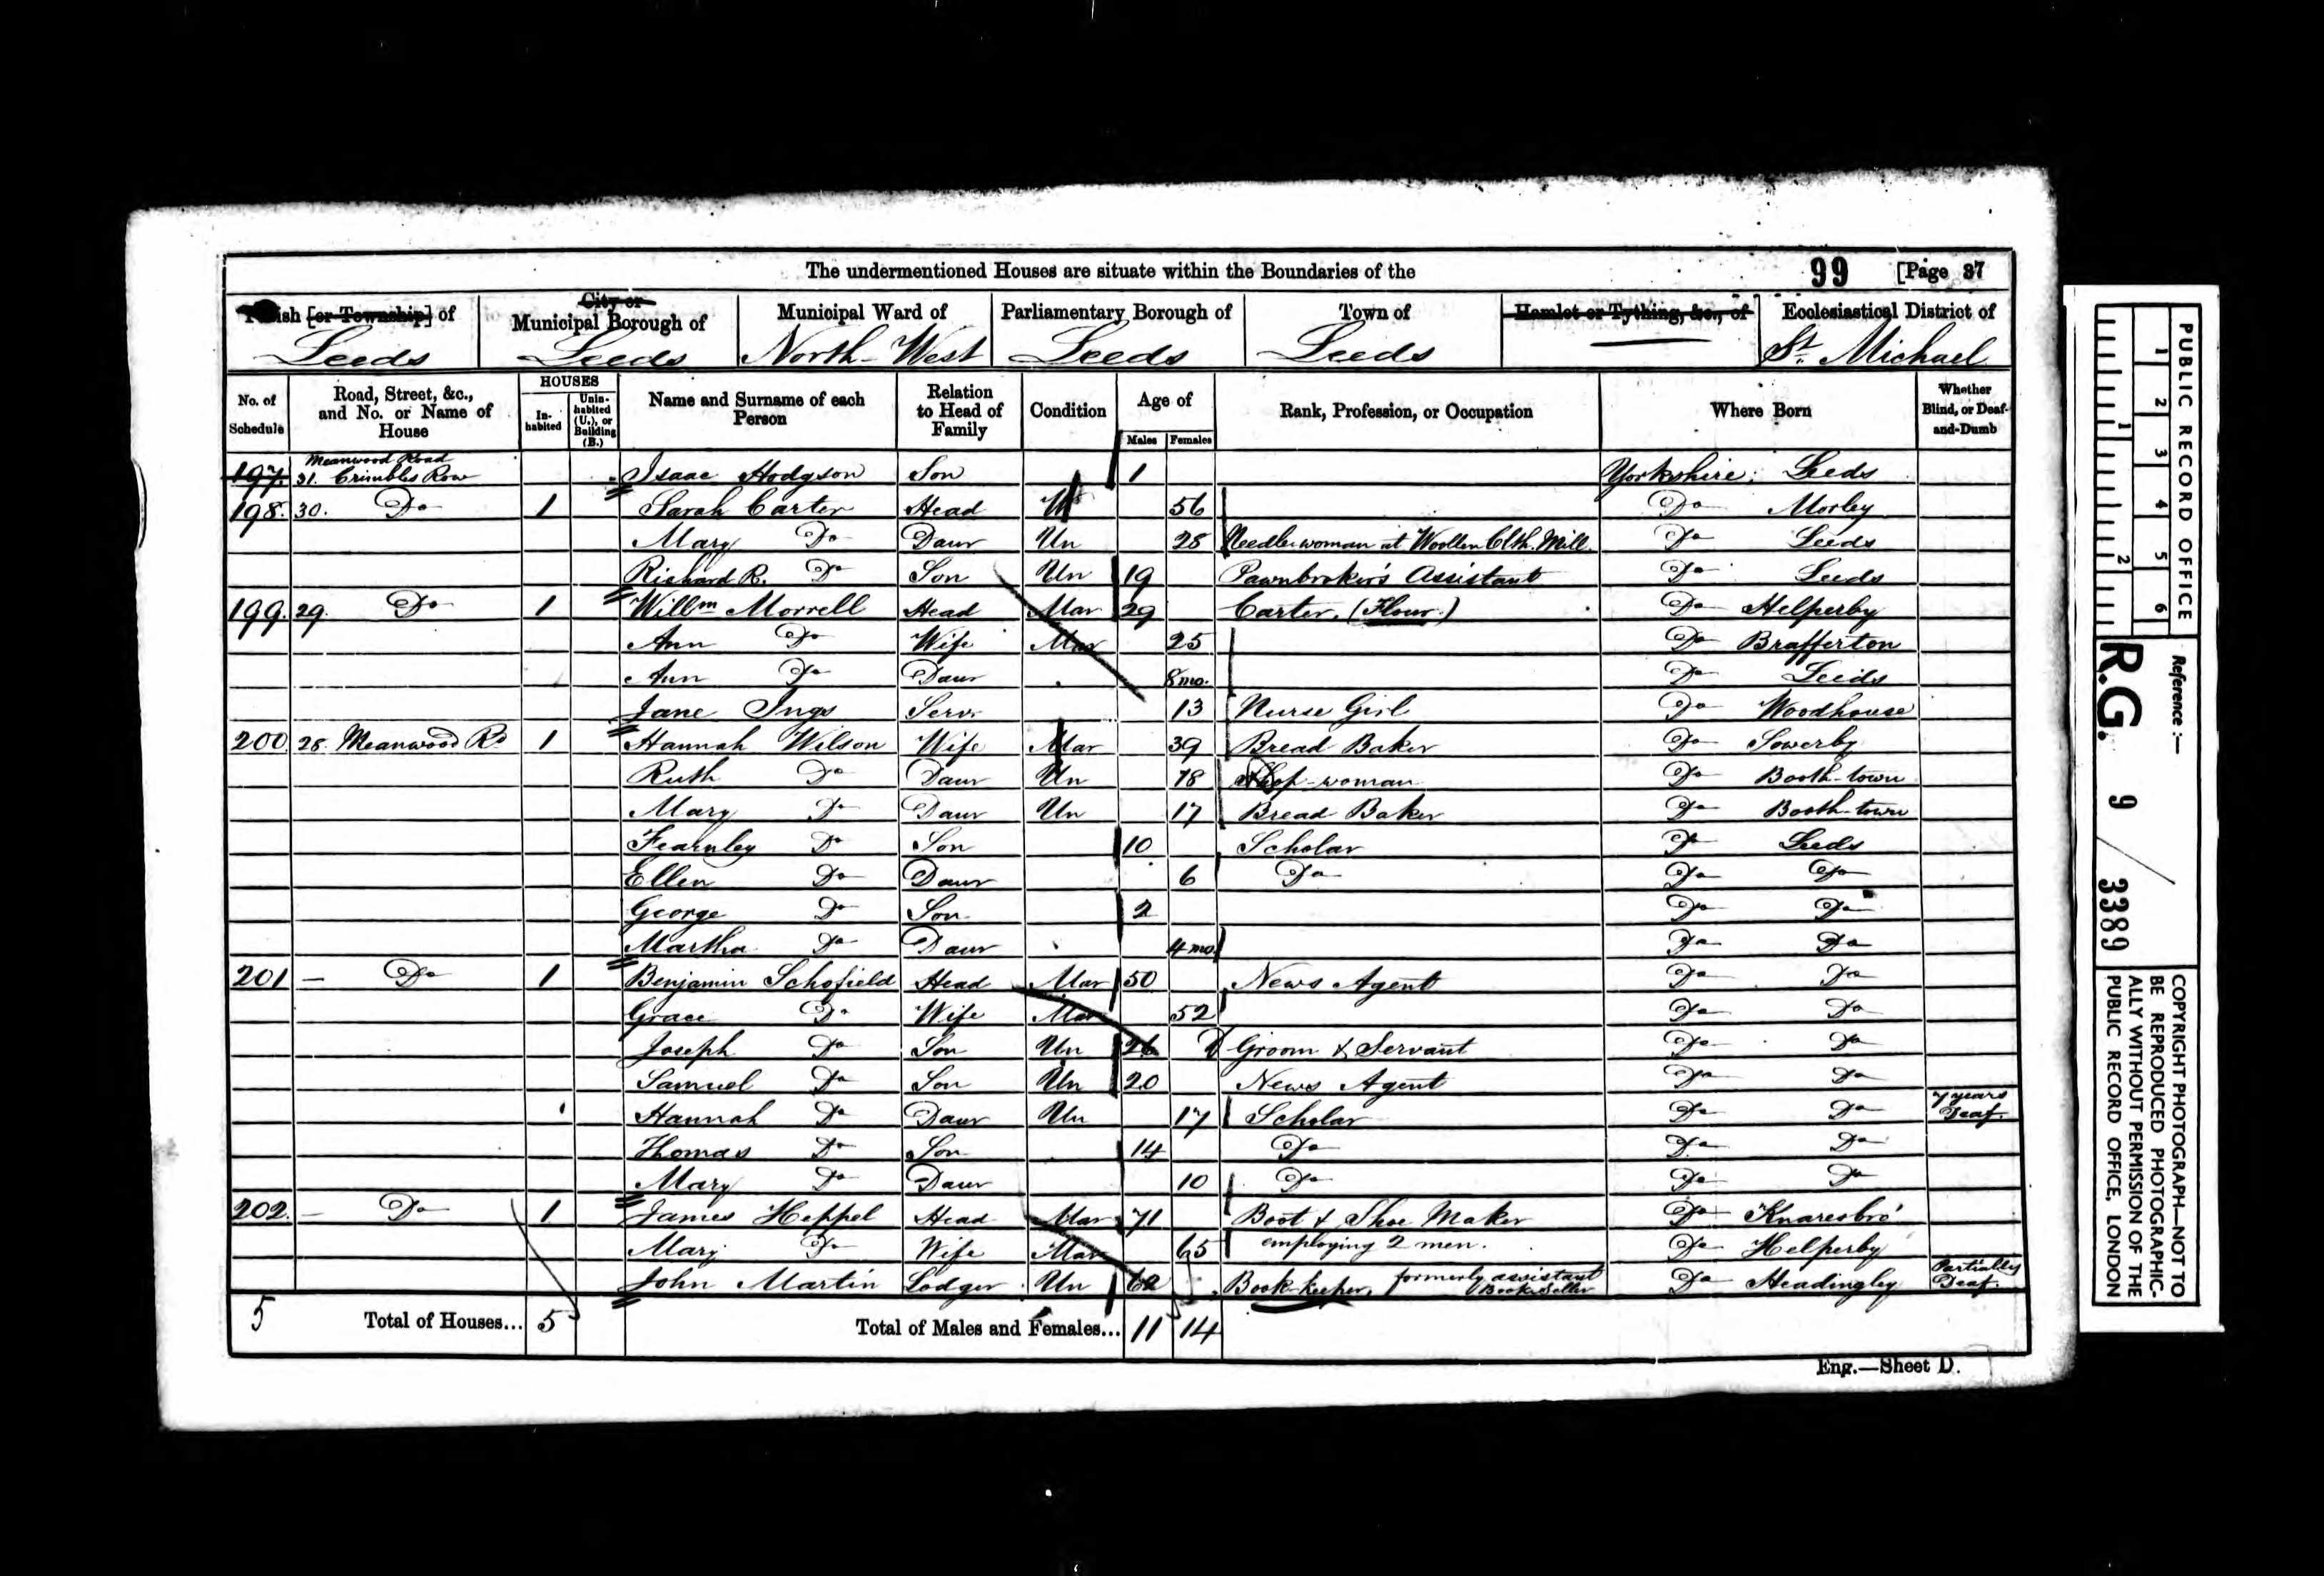 The undermentioned Houses are situate within the Boundaries of the 99 [Page 37
Parish [or Township] of City or Municipal Borough of Municipal Ward of Parliamentary Borough of Town of Hamlet or Tything, &c., of Ecclesiastical District of
Leeds Leeds North-West Leeds Leeds St. Michael
No. of Schedule Road, Street, &c., and No. or Name of House HOUSES Inhabited Uninhabited (U.), or Building (B.) Name and Surname of each Person Relation to Head of Family Condition Age of Males Females Rank, Profession, or Occupation Where Born Whether Blind, or Deaf-and-Dumb
Meanwood Road
197. 31. Crimbles Row Isaac Hodgson Son 1 Yorkshire; Leeds
198. 30. Do 1 Sarah Carter Head W 56 Do Morley
Mary Do Daur Un 28 Needlewoman at Woollen Clth. Mill. Do Leeds
Richard R. Do Son Un 19 Pawnbroker's Assistant Do Leeds
199. 29. Do 1 Willm Morrell Head Mar 29 Carter. (Flour.) Do Helperby
Ann Do Wife Mar 25 Do Brafferton
Ann Do Daur 8 mo. Do Leeds
Jane Ings Serv. 13 Nurse Girl Do Woodhouse
200 28. Meanwood Rd 1 Hannah Wilson Wife Mar 39 Bread Baker Do Sowerby
Ruth Do Daur Un 18 Shop-woman Do Booth-town
Mary Do Daur Un 17 Bread Baker Do Booth-town
Fearnley Do Son 10 Scholar Do Leeds
Ellen Do Daur 6 Do Do Do
George Do Son 2 Do Do
Martha Do Daur 4 mo. Do Do
201 — Do 1 Benjamin Schofield Head Mar 50 News Agent Do Do
Grace Do Wife Mar 52 Do Do
Joseph Do Son Un 26 Groom & Servant Do Do
Samuel Do Son Un 20 News Agent Do Do
Hannah Do Daur Un 17 Scholar Do Do 7 years Deaf.
Thomas Do Son 14 Do Do Do
Mary Do Daur 10 Do Do Do
202. — Do 1 James Heppel Head Mar 71 Boot & Shoe Maker Do Knaresbro'
Mary Do Wife Mar 65 employing 2 men. Do Helperby
John Martin Lodger Un 62 Book-keeper, formerly assistant Book Seller Do Headingley Partially Deaf.
5 Total of Houses... 5 Total of Males and Females... 11 14
Eng.—Sheet D.
PUBLIC RECORD OFFICE
1 2 3 4 5 6
1 2
Reference :—
R.G. 9 / 3389
COPYRIGHT PHOTOGRAPH—NOT TO
BE REPRODUCED PHOTOGRAPHIC-
ALLY WITHOUT PERMISSION OF THE
PUBLIC RECORD OFFICE, LONDON